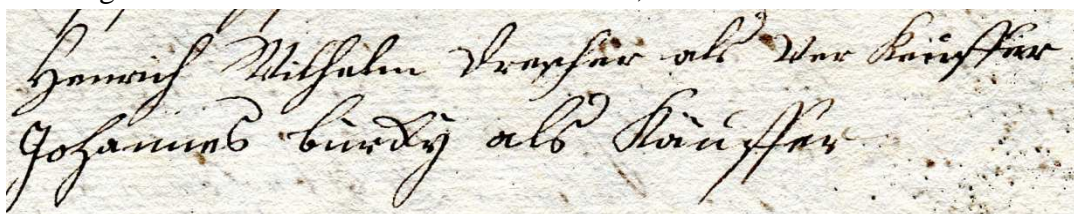 Henrich Wilhelm Drescher als Ver Keüffer
Johannes bürky als Käuffer